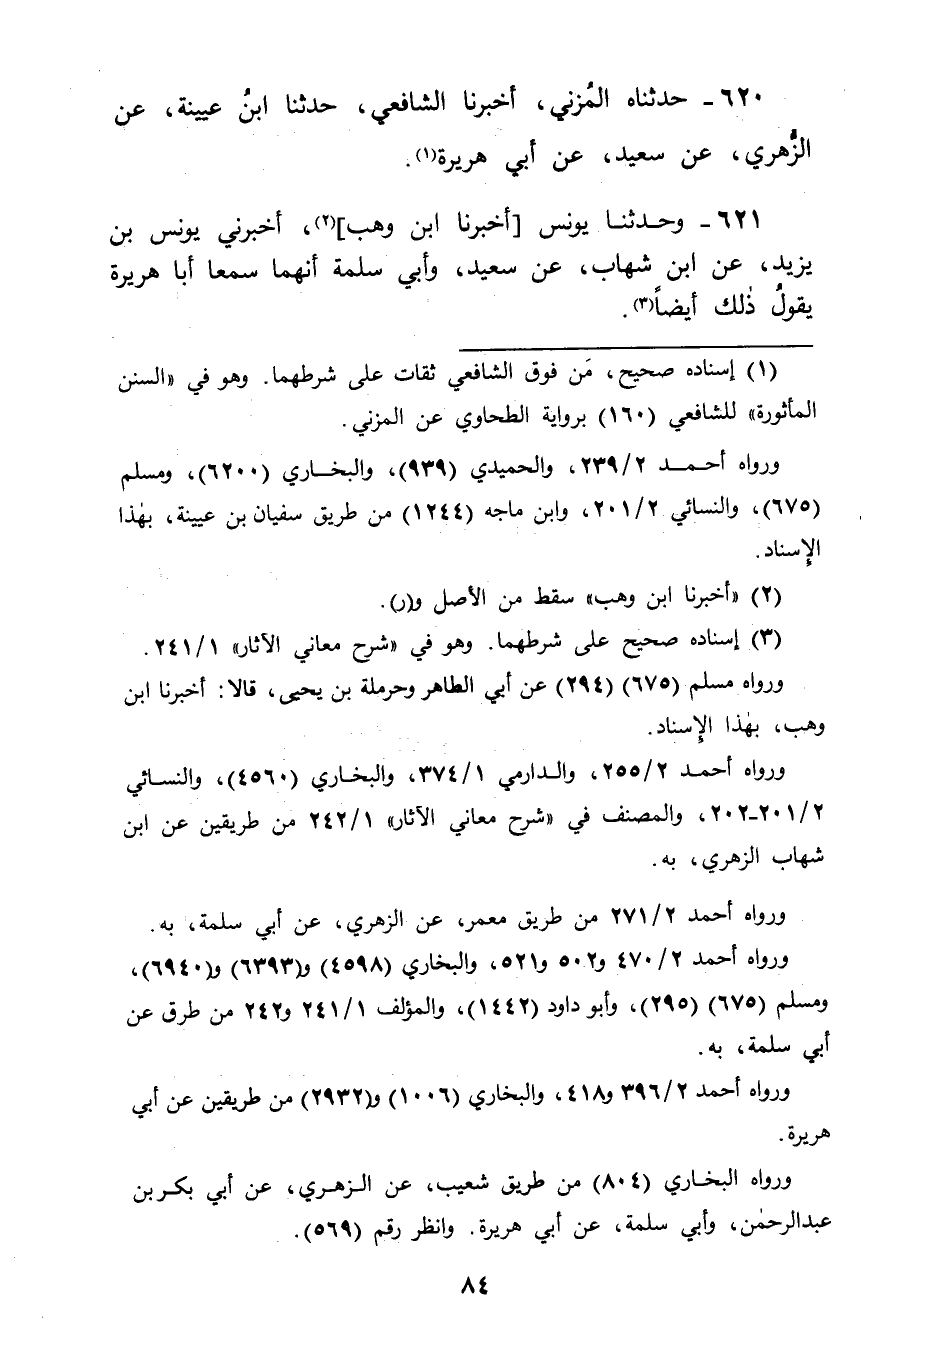 ٦٢٠ ـ حدثناه المُزني، أخبرنا الشافعي، حدثنا ابنُ عيينة، عن
الزُّهري، عن سعيد، عن أبي هريرة(١).
٦٢١ ـ وحدثنا يونس [أخبرنا ابن وهب](٢)، أخبرني يونس بن
يزيد، عن ابن شهاب، عن سعيد، وأبي سلمة أنهما سمعا أبا هريرة
يقولُ ذٰلك أيضاً(٣).
(١) إسناده صحيح، مَن فوق الشافعي ثقات على شرطهما. وهو في «السنن
المأثورة» للشافعي (١٦٠) برواية الطحاوي عن المزني.
ورواه أحمد ٢٣٩/٢، والحميدي (٩٣٩)، والبخاري (٦٢٠٠)، ومسلم
(٦٧٥)، والنسائي ٢٠١/٢، وابن ماجه (١٢٤٤) من طريق سفيان بن عيينة، بهٰذا
الإسناد.
(٢) «أخبرنا ابن وهب» سقط من الأصل و(ر).
(٣) إسناده صحيح على شرطهما. وهو في «شرح معاني الآثار» ٢٤١/١.
ورواه مسلم (٦٧٥) (٢٩٤) عن أبي الطاهر وحرملة بن يحيى، قالا: أخبرنا ابن
وهب، بهٰذا الإسناد.
ورواه أحمد ٢٥٥/٢، والدارمي ٣٧٤/١، والبخاري (٤٥٦٠)، والنسائي
٢٠١/٢-٢٠٢، والمصنف في «شرح معاني الآثار» ٢٤٢/١ من طريقين عن ابن
شهاب الزهري، به.
ورواه أحمد ٢٧١/٢ من طريق معمر، عن الزهري، عن أبي سلمة، به.
ورواه أحمد ٤٧٠/٢ و٥٠٢ و٥٢١، والبخاري (٤٥٩٨) و(٦٣٩٣) و(٦٩٤٠)،
ومسلم (٦٧٥) (٢٩٥)، وأبو داود (١٤٤٢)، والمؤلف ٢٤١/١ و٢٤٢ من طرق عن
أبي سلمة، به.
ورواه أحمد ٣٩٦/٢ و٤١٨، والبخاري (١٠٠٦) و(٢٩٣٢) من طريقين عن أبي
هريرة.
ورواه البخاري (٨٠٤) من طريق شعيب، عن الزهري، عن أبي بكر بن
عبدالرحمٰن، وأبي سلمة، عن أبي هريرة. وانظر رقم (٥٦٩).
٨٤